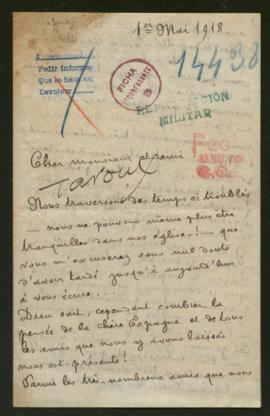 1er Mai 1918
14438
Pedir informe
Que lo haga
Devolver
FICHA
MILITAR
Cher monsieur et ami,
Nous traversons des temps si troublés
— nous ne pouvons même plus être
tranquilles dans nos églises! — que
vous m'excuserez sans nul doute
d'avoir tardé jusqu'à aujourd'hui
à vous écrire...
Dieu sait, cependant combien la
pensée de la chère Espagne et de tous
les amis que nous y avons laissés
nous est présente!
Parmi les très-nombreux amis que nous